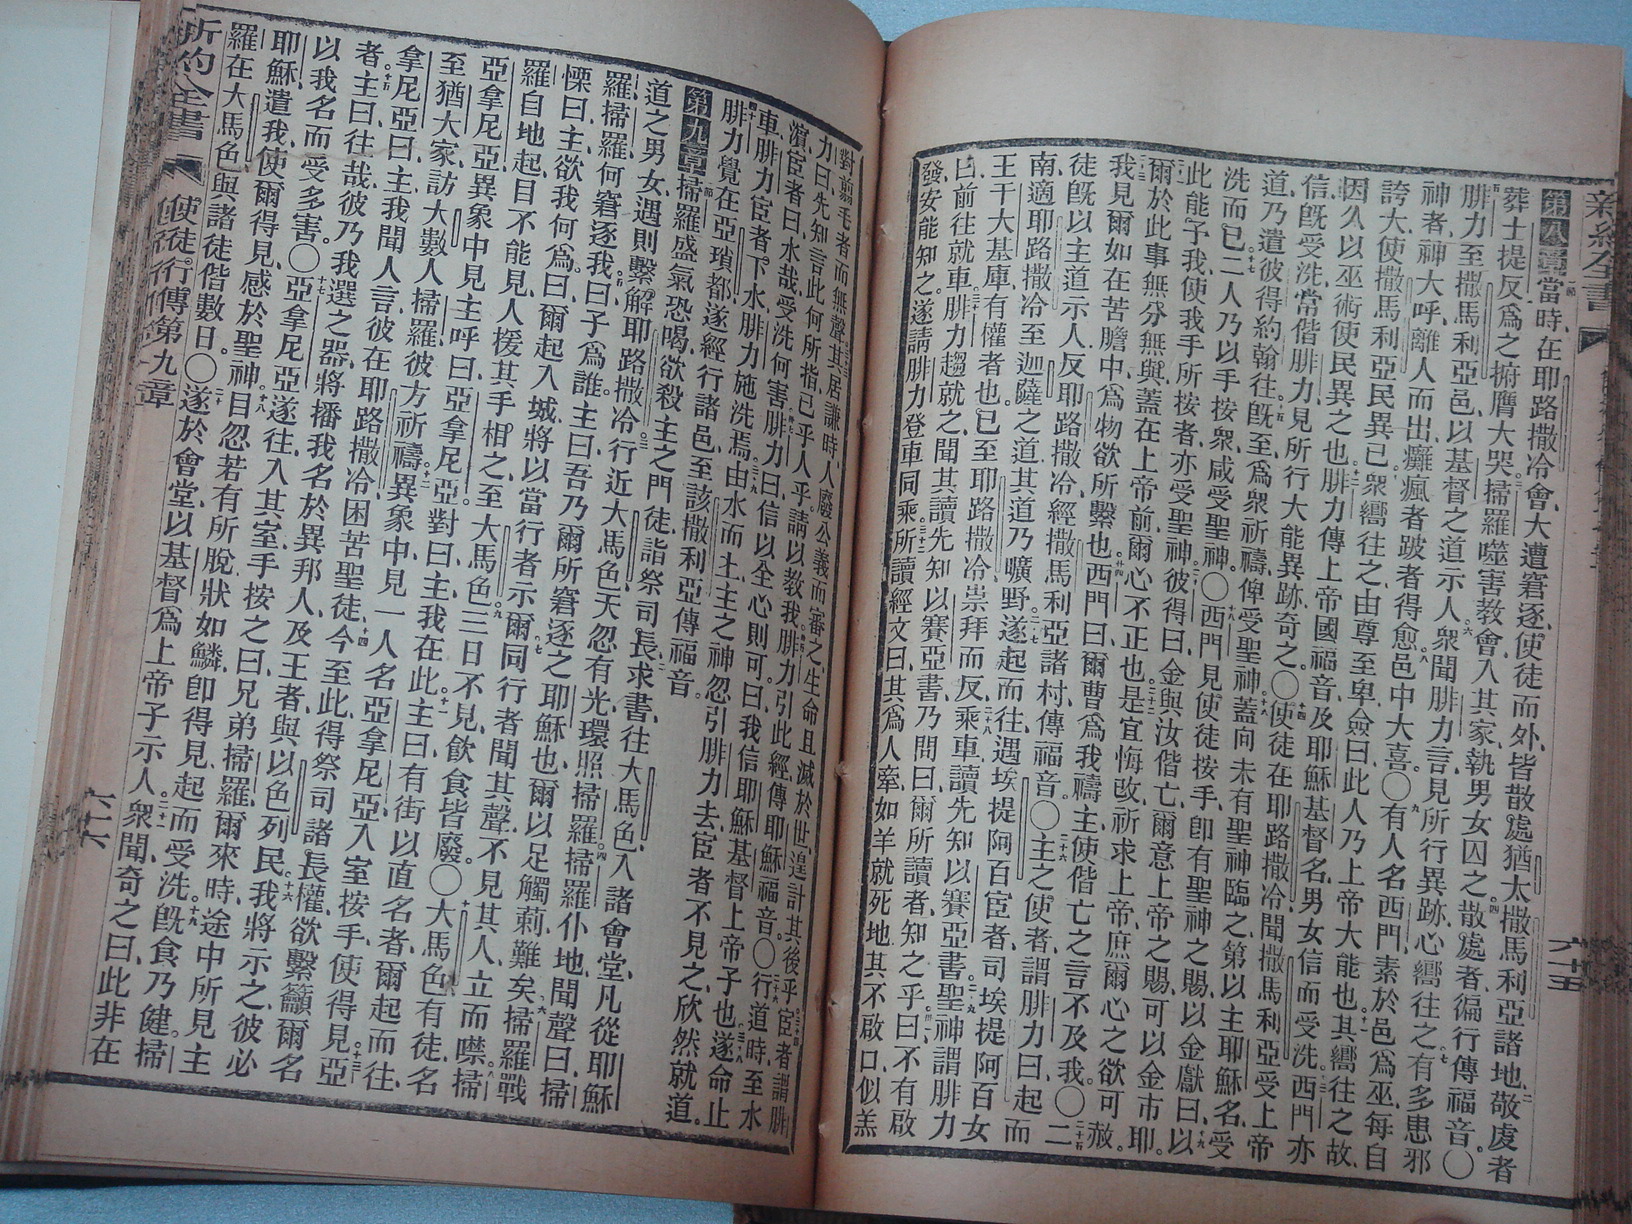 新約全書
六十五
第八章當時、在耶路撒冷會、大遭窘逐、使徒而外、皆散處猶太撒馬利亞諸地、二敬虔者
葬士提反、爲之擗膺大哭、三掃羅噬害教會、入其家、執男女囚之、四散處者、徧行傳福音。〇
五腓力至撒馬利亞邑、以基督之道示人。六衆聞腓力言、見所行異跡、心嚮往之、七有多患邪
神者、神大呼、離人而出、癱瘋者跛者得愈、八邑中大喜。〇九有人名西門、素於邑爲巫、每自
誇大、使撒馬利亞民異已。十衆嚮往之、由尊至卑、僉曰、此人乃上帝大能也。十一其嚮往之故、
因久以巫術使民異之也。十二腓力傳上帝國福音、及耶穌基督名、男女信而受洗、十三西門亦
信、旣受洗、常偕腓力、見所行大能異跡、奇之。〇十四使徒在耶路撒冷、聞撒馬利亞受上帝
道、乃遣彼得約翰往。十五旣至、爲衆祈禱、俾受聖神、十六蓋向未有聖神臨之、第以主耶穌名、受
洗而已、十七二人乃以手按衆、咸受聖神。〇十八西門見使徒按手、卽有聖神之賜、以金獻曰、十九以
此能予我、使我手所按者、亦受聖神。二十彼得曰、金與汝偕亡、爾意上帝之賜、可以金市耶。
二十一爾於此事、無分無與、蓋在上帝前、爾心不正也、二十二是宜悔改、祈求上帝、庶爾心之欲可赦。
二十三我見爾如在苦膽中、爲物欲所繫也。二十四西門曰、爾曹爲我禱主、使偕亡之言、不及我。〇二十五二
徒旣以主道示人、反耶路撒冷、經撒馬利亞諸村、傳福音。〇二十六主之使者、謂腓力曰、起而
南、適耶路撒冷至迦薩之道、其道乃曠野、二十七遂起而往、遇埃提阿百宦者、司埃提阿百女
王干大基庫、有權者也、已至耶路撒冷崇拜而反、二十八乘車、讀先知以賽亞書、二十九聖神謂腓力
曰、前往就車、三十腓力趨就之、聞其讀先知以賽亞書、乃問曰、爾所讀者、知之乎、三十一曰、不有啟
發、安能知之、遂請腓力登車同乘。三十二所讀經文曰、其爲人牽、如羊就死地、其不啟口、似羔
對翦毛者而無聲、三十三其居謙時、人廢公義而審之、生命且滅於世、遑計其後乎、三十四宦者謂腓
力曰、先知言此、何所指、已乎、人乎、請以教我、三十五腓力引此經、傳耶穌福音。〇三十六行道時、至水
濵、宦者曰、水哉、受洗何害、三十七腓力曰、信以全心則可、曰、我信耶穌基督、上帝子也、三十八遂命止
車、腓力宦者、下水、腓力施洗焉。三十九由水而上、主之神忽引腓力去、宦者不見之、欣然就道。
四十腓力覺在亞瑣都、遂經行諸邑、至該撒利亞傳福音。
第九章掃羅盛氣恐喝、欲殺主之門徒、詣祭司長、二求書、往大馬色、入諸會堂、凡從耶穌
道之男女、遇則繫解耶路撒冷、三行近大馬色、天忽有光環照掃羅、四掃羅仆地、聞聲曰、掃
羅掃羅、何窘逐我、五曰、子爲誰、主曰、吾乃爾所窘逐之耶穌也、爾以足觸莿難矣、六掃羅戰
慄曰、主欲我何爲、曰、爾起入城、將以當行者示爾、七同行者聞其聲、不見其人、立而噤、八掃
羅自地起、目不能見、人援其手相之、至大馬色、九三日不見、飲食皆廢。〇十大馬色有徒、名
亞拿尼亞、異象中見主呼曰、亞拿尼亞、對曰、主、我在此、十一主曰、有街以直名者、爾起而往、
至猶大家、訪大數人掃羅、彼方祈禱、十二異象中見一人名亞拿尼亞、入室按手、使得見、十三亞
拿尼亞曰、主、我聞人言、彼在耶路撒冷困苦聖徒、十四今至此、得祭司諸長權、欲繫籲爾名
者、十五主曰、往哉、彼乃我選之器、將播我名於異邦人、及王者、與以色列民、十六我將示之、彼必
以我名而受多害〇十七亞拿尼亞遂往、入其室、手按之曰、兄弟掃羅、爾來時、途中所見主
耶穌遣我、使爾得見、感於聖神、十八目忽若有所脫、狀如鱗、卽得見、起而受洗、十九旣食乃健。掃
羅在大馬色、與諸徒偕數日。〇二十遂於會堂、以基督爲上帝子示人。二十一衆聞、奇之曰、此非在
新約全書 使徒行傳第九章
六十六